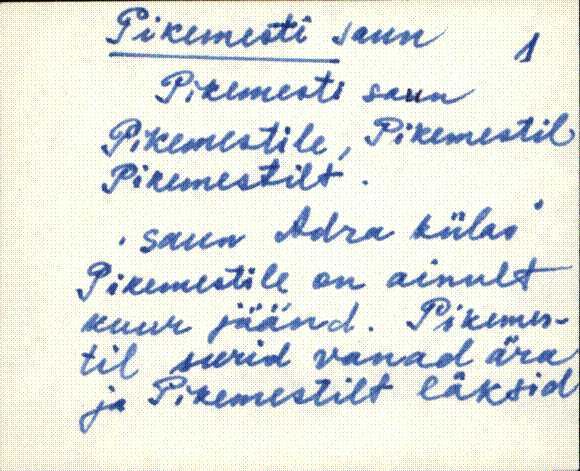 Pikemesti saun
1
Pikemesti saun
Pikemestile, Pikemestil
Pikemestilt.
"saun Adra külas"
Pikemestile on ainult
kuur jäänd. Pikemes-
til surid vanad ära
ja Pikemestilt läksid